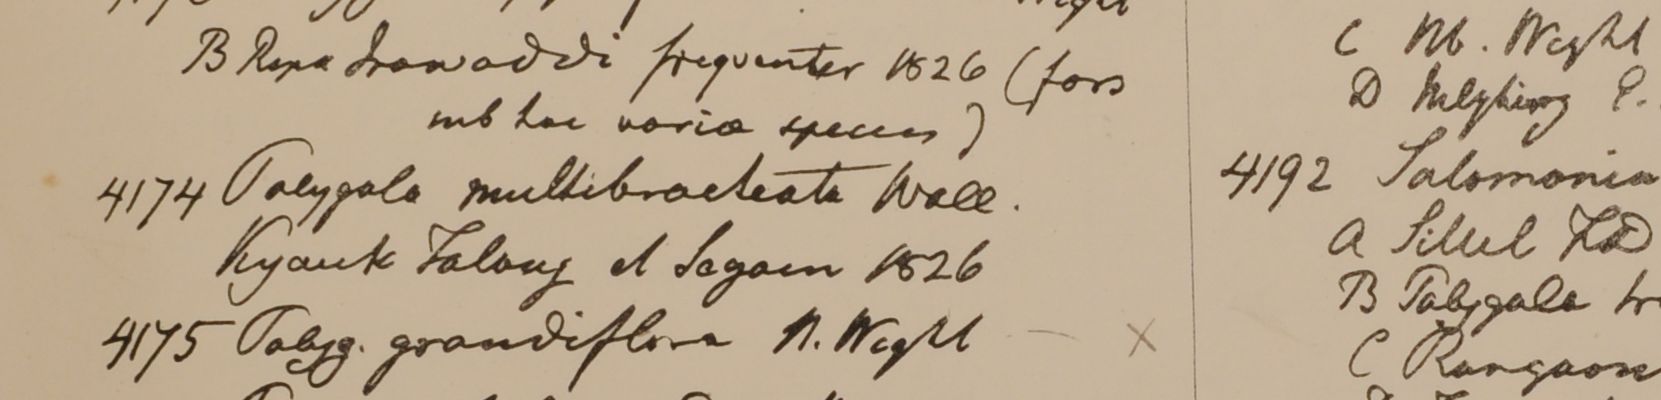 B Ripa Irawaddi frequenter 1826 (fors
sub hac variæ species)
4174 Polygala multibracteata Wall.
Kyauk Talong et Segaen 1826
4175 Polyg. grandiflora N. Wight — X
C M. Wight
D
4192 Salomonia
A Sillet FD
B Polygala
C Rangaon